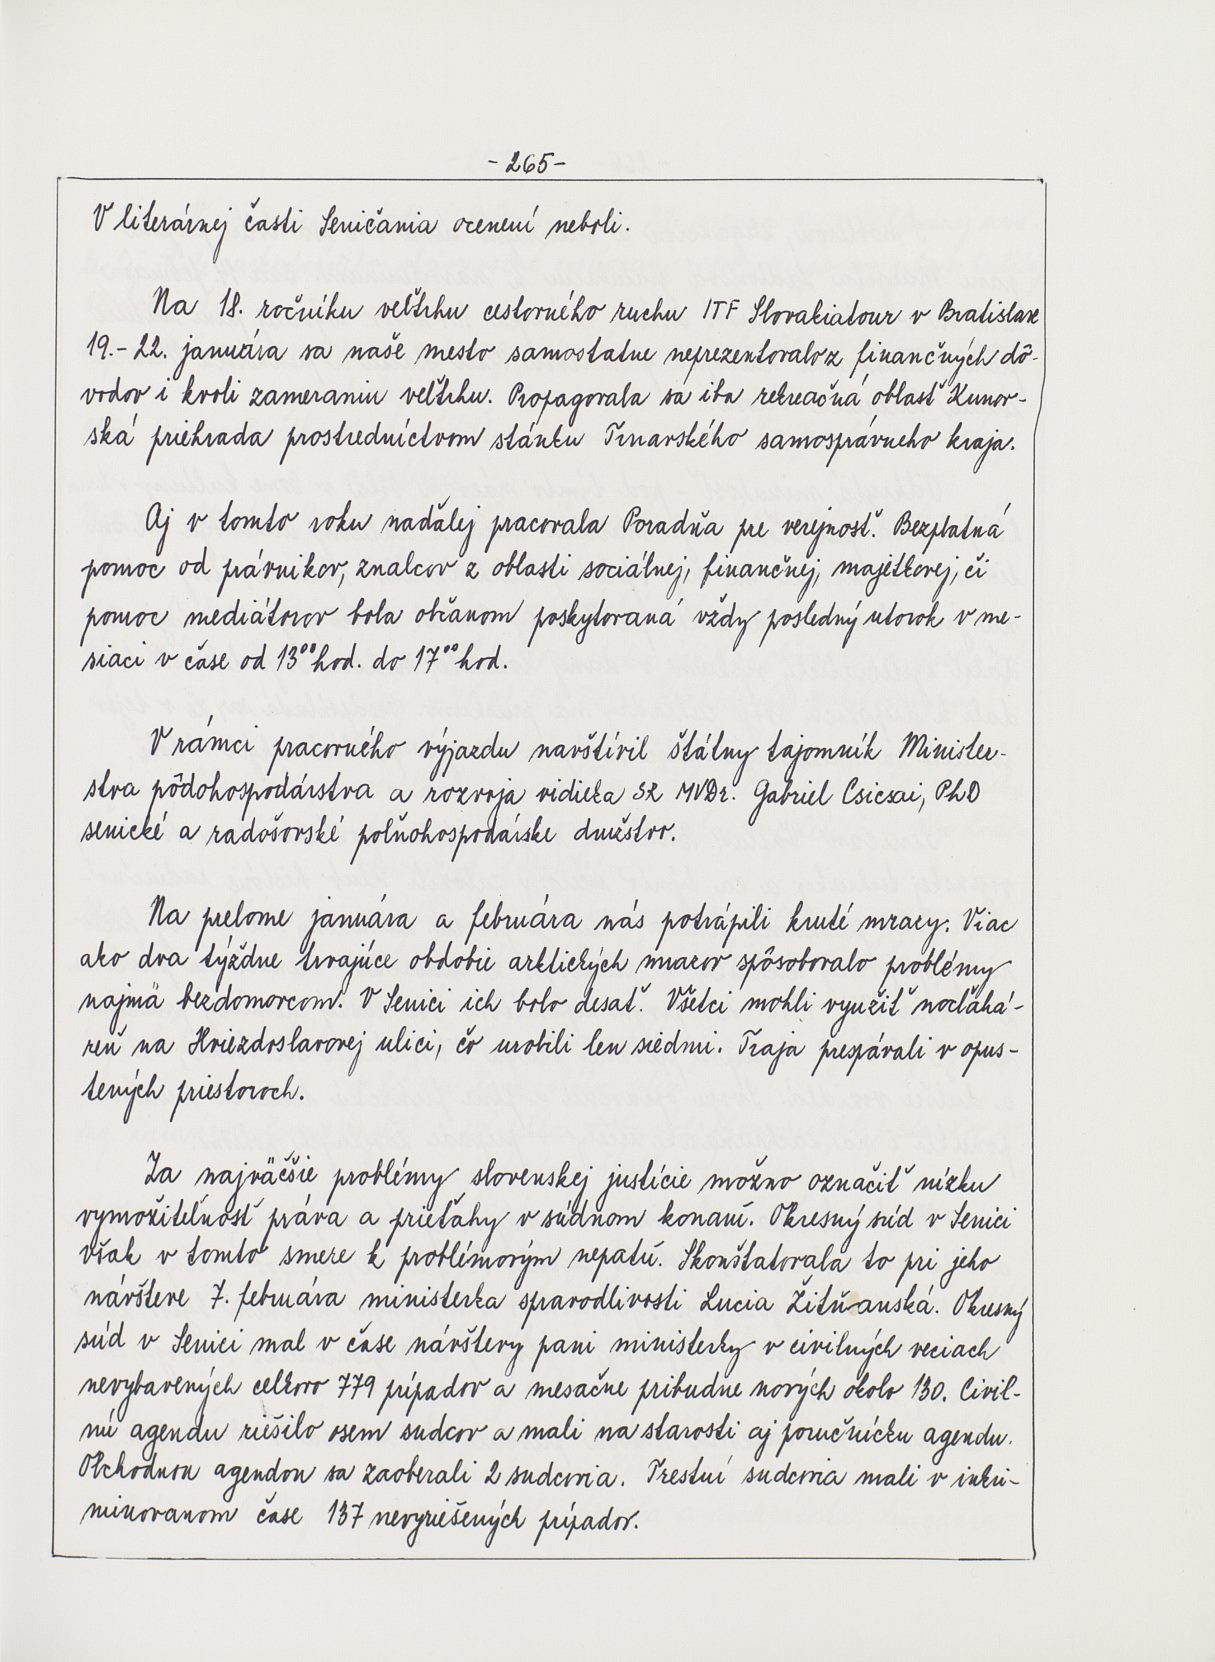 - 265 -
V literárnej časti Seničania ocenení neboli.
Na 18. ročníku veľtrhu cestovného ruchu ITF Slovakiatour v Bratislave
19.- 22. januára sa naše mesto samostatne neprezentovalo z finančných dô-
vodov i kvoli zameraniu veľtrhu. Propagovala sa iba rekreačná oblasť Kunov-
ská priehrada prostredníctvom stánku Trnavského samosprávneho kraja.
Aj v tomto roku naďalej pracovala Poradňa pre verejnosť. Bezplatná
pomoc od právnikov, znalcov z oblasti sociálnej, finančnej, majetkovej, či
pomoc mediátorov bola občanom poskytovaná vždy posledný utorok v me-
siaci v čase od 13⁰⁰ hod. do 17⁰⁰ hod.
V rámci pracovného výjazdu navštívil štátny tajomník Minister-
stva pôdohospodárstva a rozvoja vidieka SR MVDr. Gabriel Csicsai, PhD
senické a radošovské poľnohospodárske družstvo.
Na prelome januára a februára nás potrápili kruté mrazy. Viac
ako dva týždne trvajúce obdobie arktických mrazov spôsobovalo problémy
najmä bezdomovcom. V Senici ich bolo desať. Všetci mohli využiť nocľahá-
reň na Hviezdoslavovej ulici, čo urobili len siedmi. Traja prespávali v opus-
tených priestoroch.
Za najväčšie problémy slovenskej justície možno označiť nízku
vymožiteľnosť práva a prieťahy v súdnom konaní. Okresný súd v Senici
však v tomto smere k problémovým nepatí. Skonštatovala to pri jeho
návšteve 7. februára ministerka spravodlivosti Lucia Žitňanská. Okresný
súd v Senici mal v čase návštevy pani ministerky v civilných veciach
nevybavených celkovo 779 prípadov a mesačne pribudne nových okolo 130. Civil-
nú agendu riešilo osem sudcov a mali na starosti aj poručnícku agendu.
Obchodnou agendou sa zaoberali 2 sudcovia. Trestní sudcovia mali v inkri-
minovanom čase 137 nevyriešených prípadov.